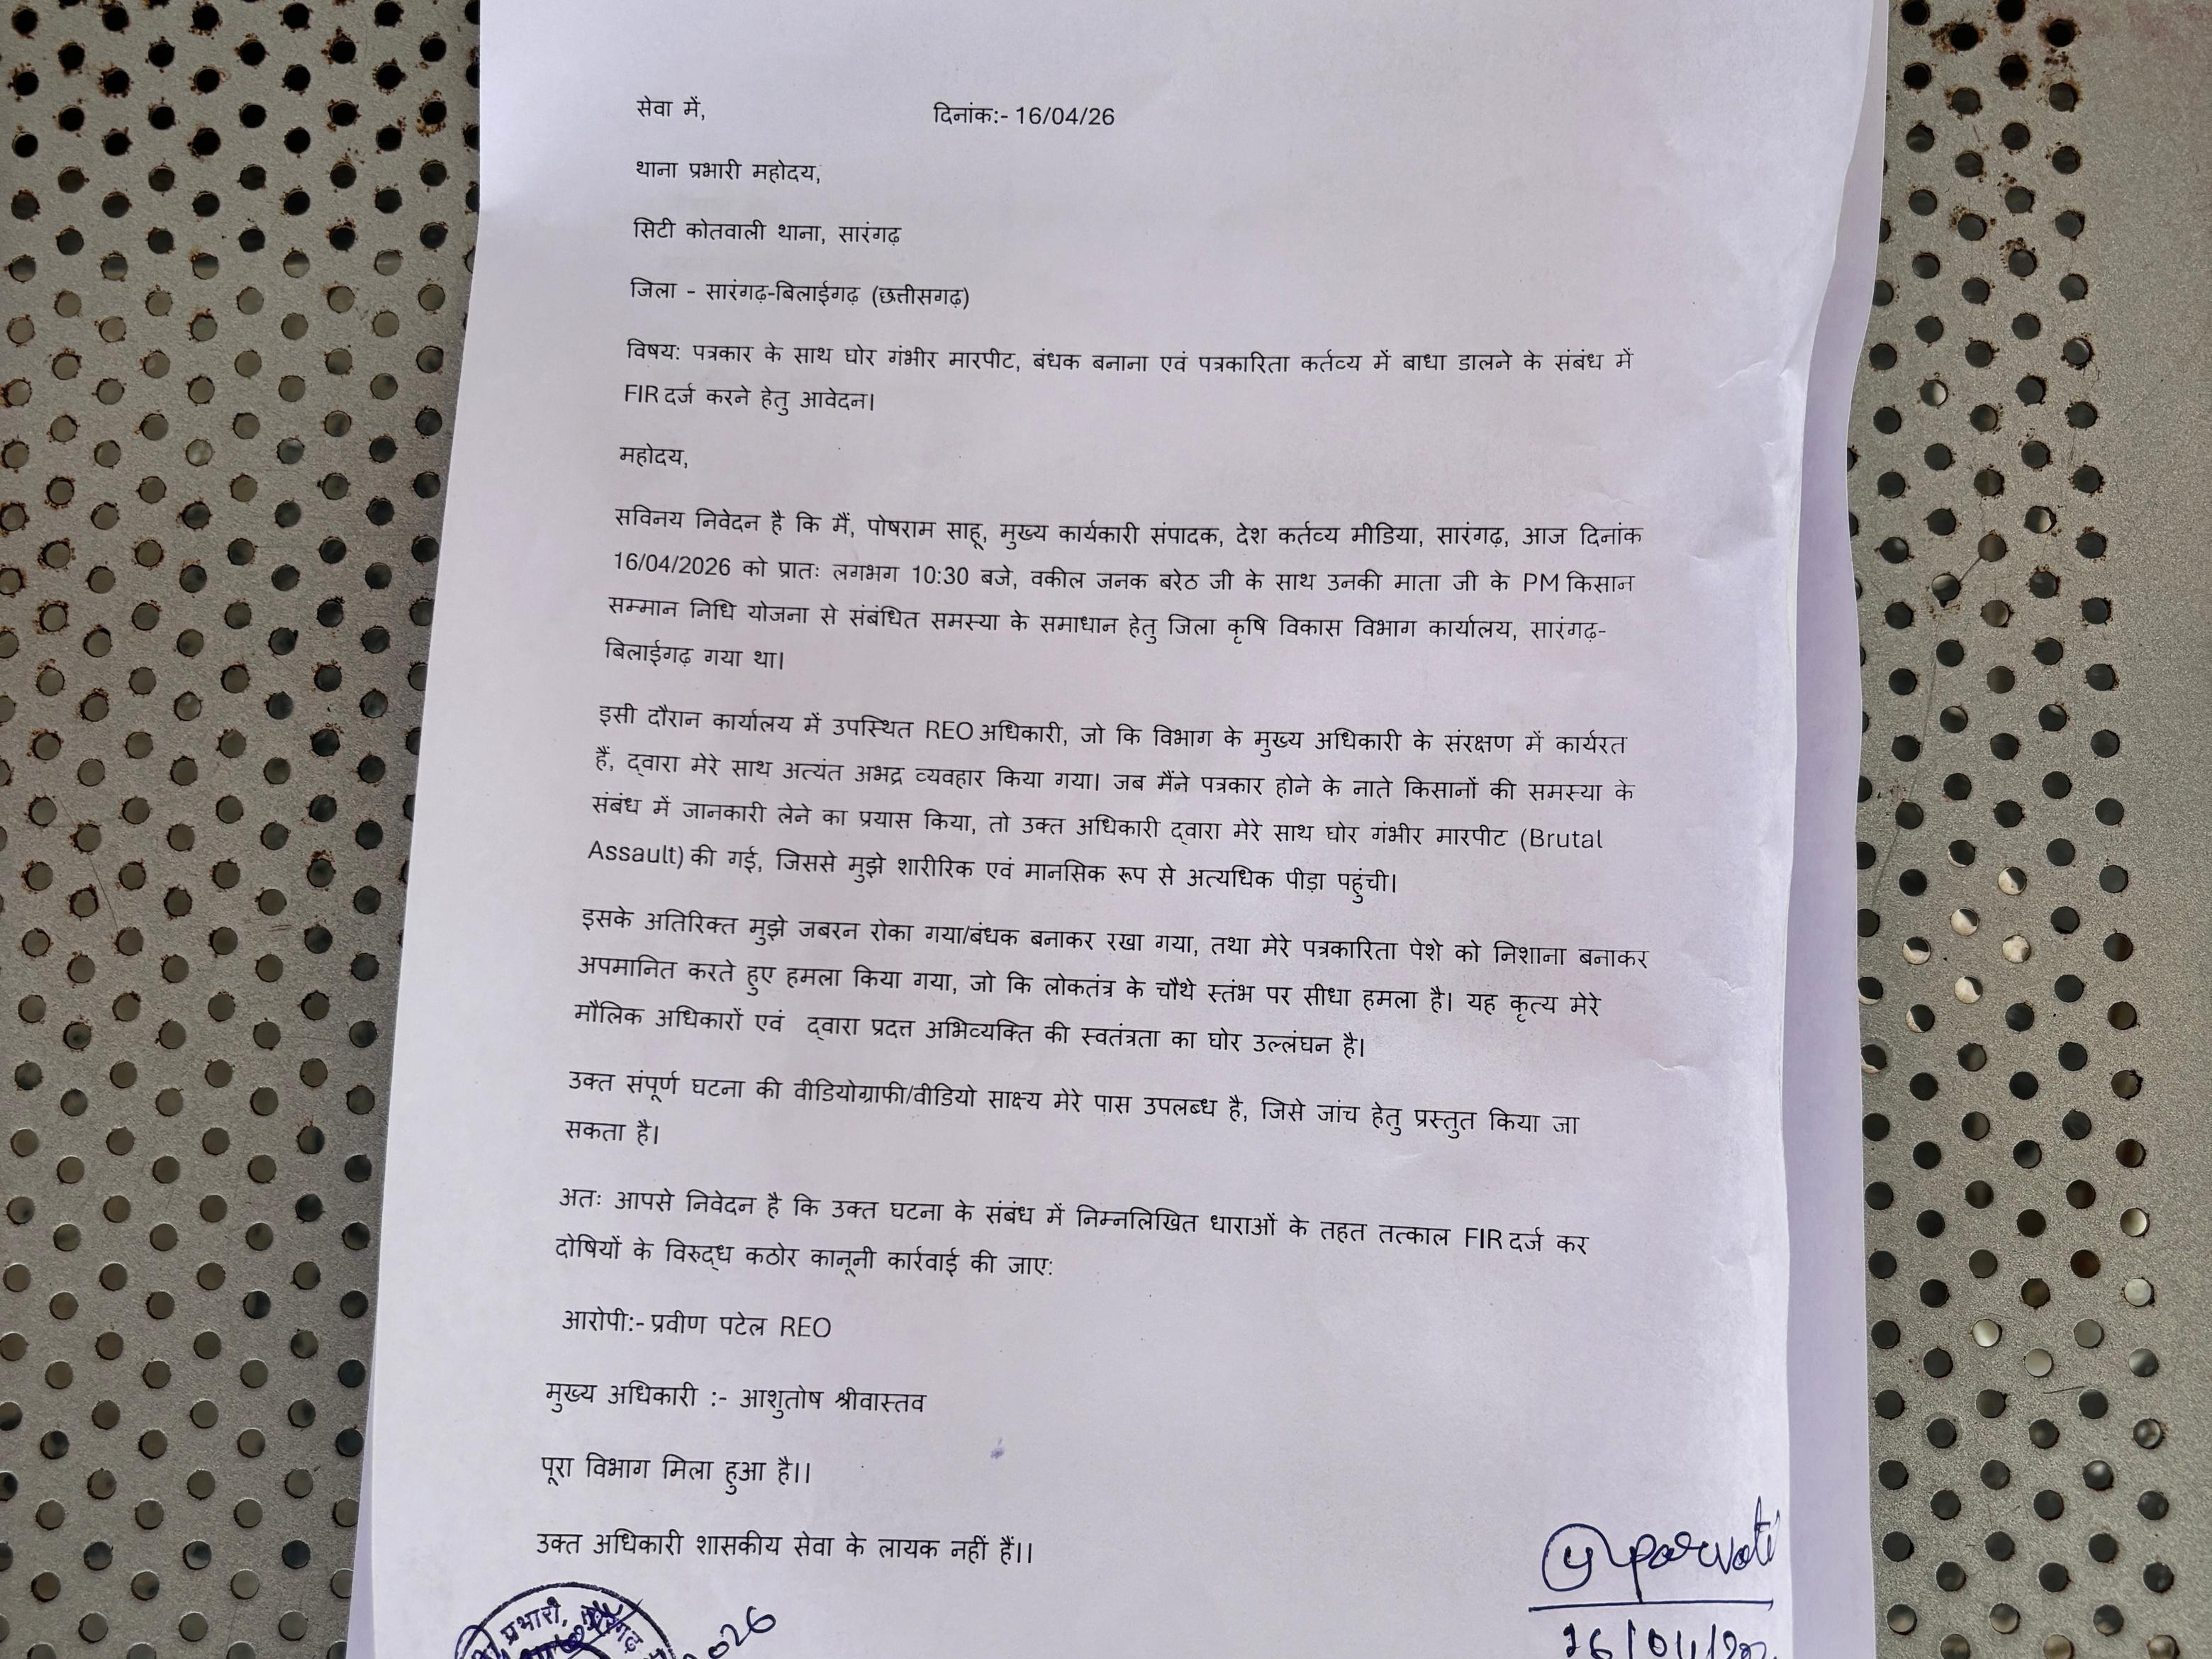 सेवा में, दिनांक:- 16/04/26
थाना प्रभारी महोदय,
सिटी कोतवाली थाना, सारंगढ़
जिला - सारंगढ़-बिलाईगढ़ (छत्तीसगढ़)
विषय: पत्रकार के साथ घोर गंभीर मारपीट, बंधक बनाना एवं पत्रकारिता कर्तव्य में बाधा डालने के संबंध में
FIR दर्ज करने हेतु आवेदन।
महोदय,
सविनय निवेदन है कि मैं, पोषराम साहू, मुख्य कार्यकारी संपादक, देश कर्तव्य मीडिया, सारंगढ़, आज दिनांक
16/04/2026 को प्रातः लगभग 10:30 बजे, वकील जनक बरेठ जी के साथ उनकी माता जी के PM किसान
सम्मान निधि योजना से संबंधित समस्या के समाधान हेतु जिला कृषि विकास विभाग कार्यालय, सारंगढ़-
बिलाईगढ़ गया था।
इसी दौरान कार्यालय में उपस्थित REO अधिकारी, जो कि विभाग के मुख्य अधिकारी के संरक्षण में कार्यरत
हैं, द्वारा मेरे साथ अत्यंत अभद्र व्यवहार किया गया। जब मैंने पत्रकार होने के नाते किसानों की समस्या के
संबंध में जानकारी लेने का प्रयास किया, तो उक्त अधिकारी द्वारा मेरे साथ घोर गंभीर मारपीट (Brutal
Assault) की गई, जिससे मुझे शारीरिक एवं मानसिक रूप से अत्यधिक पीड़ा पहुंची।
इसके अतिरिक्त मुझे जबरन रोका गया/बंधक बनाकर रखा गया, तथा मेरे पत्रकारिता पेशे को निशाना बनाकर
अपमानित करते हुए हमला किया गया, जो कि लोकतंत्र के चौथे स्तंभ पर सीधा हमला है। यह कृत्य मेरे
मौलिक अधिकारों एवं द्वारा प्रदत्त अभिव्यक्ति की स्वतंत्रता का घोर उल्लंघन है।
उक्त संपूर्ण घटना की वीडियोग्राफी/वीडियो साक्ष्य मेरे पास उपलब्ध है, जिसे जांच हेतु प्रस्तुत किया जा
सकता है।
अतः आपसे निवेदन है कि उक्त घटना के संबंध में निम्नलिखित धाराओं के तहत तत्काल FIR दर्ज कर
दोषियों के विरुद्ध कठोर कानूनी कार्रवाई की जाए:
आरोपी:- प्रवीण पटेल REO
मुख्य अधिकारी :- आशुतोष श्रीवास्तव
पूरा विभाग मिला हुआ है।।
उक्त अधिकारी शासकीय सेवा के लायक नहीं हैं।।
parvati
प्रभारी,